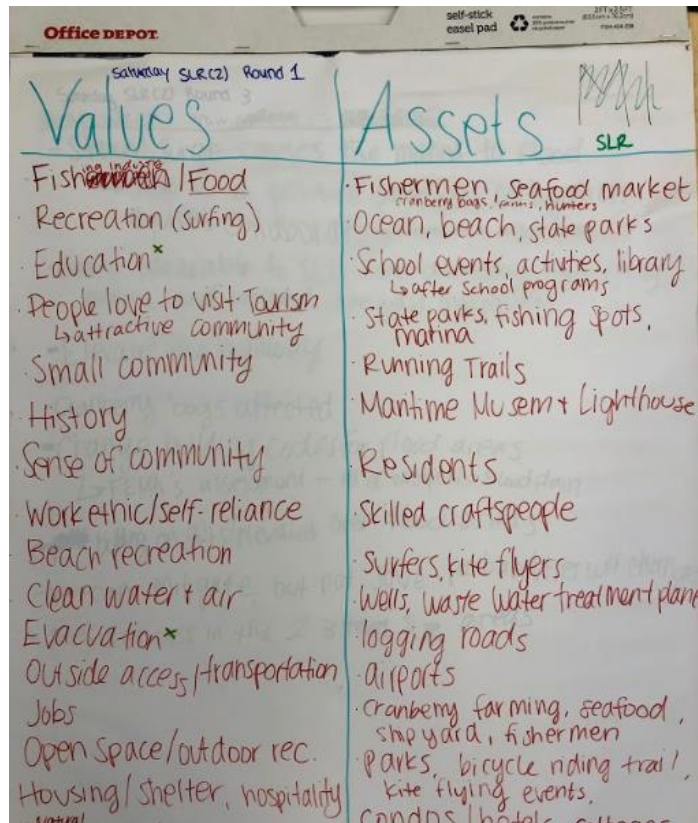 Office DEPOT.
self-stick
easel pad
Saturday SLR(2) Round 1
Values
Assets
SLR
Fishing industry / Food
Recreation (surfing)
Education x
People love to visit. Tourism
↳ attractive community
Small community
History
Sense of community
Work ethic/self-reliance
Beach recreation
Clean water + air
Evacuation x
Outside access/transportation
Jobs
Open Space/outdoor rec.
Housing/Shelter, hospitality
Natural
· Fishermen, seafood market
cranberry bogs, farms, hunters
· Ocean, beach, state parks
· School events, activities, library
↳ after school programs
· State parks, fishing spots,
marina
· Running Trails
· Maritime Musem + Lighthouse
· Residents
· Skilled craftspeople
· Surfers, kite flyers
· Wells, waste water treatment plant
· logging roads
· airports
· cranberry farming, seafood,
shipyard, fishermen
· parks, bicycle riding trail,
kite flying events,
condos/hotels, cottages